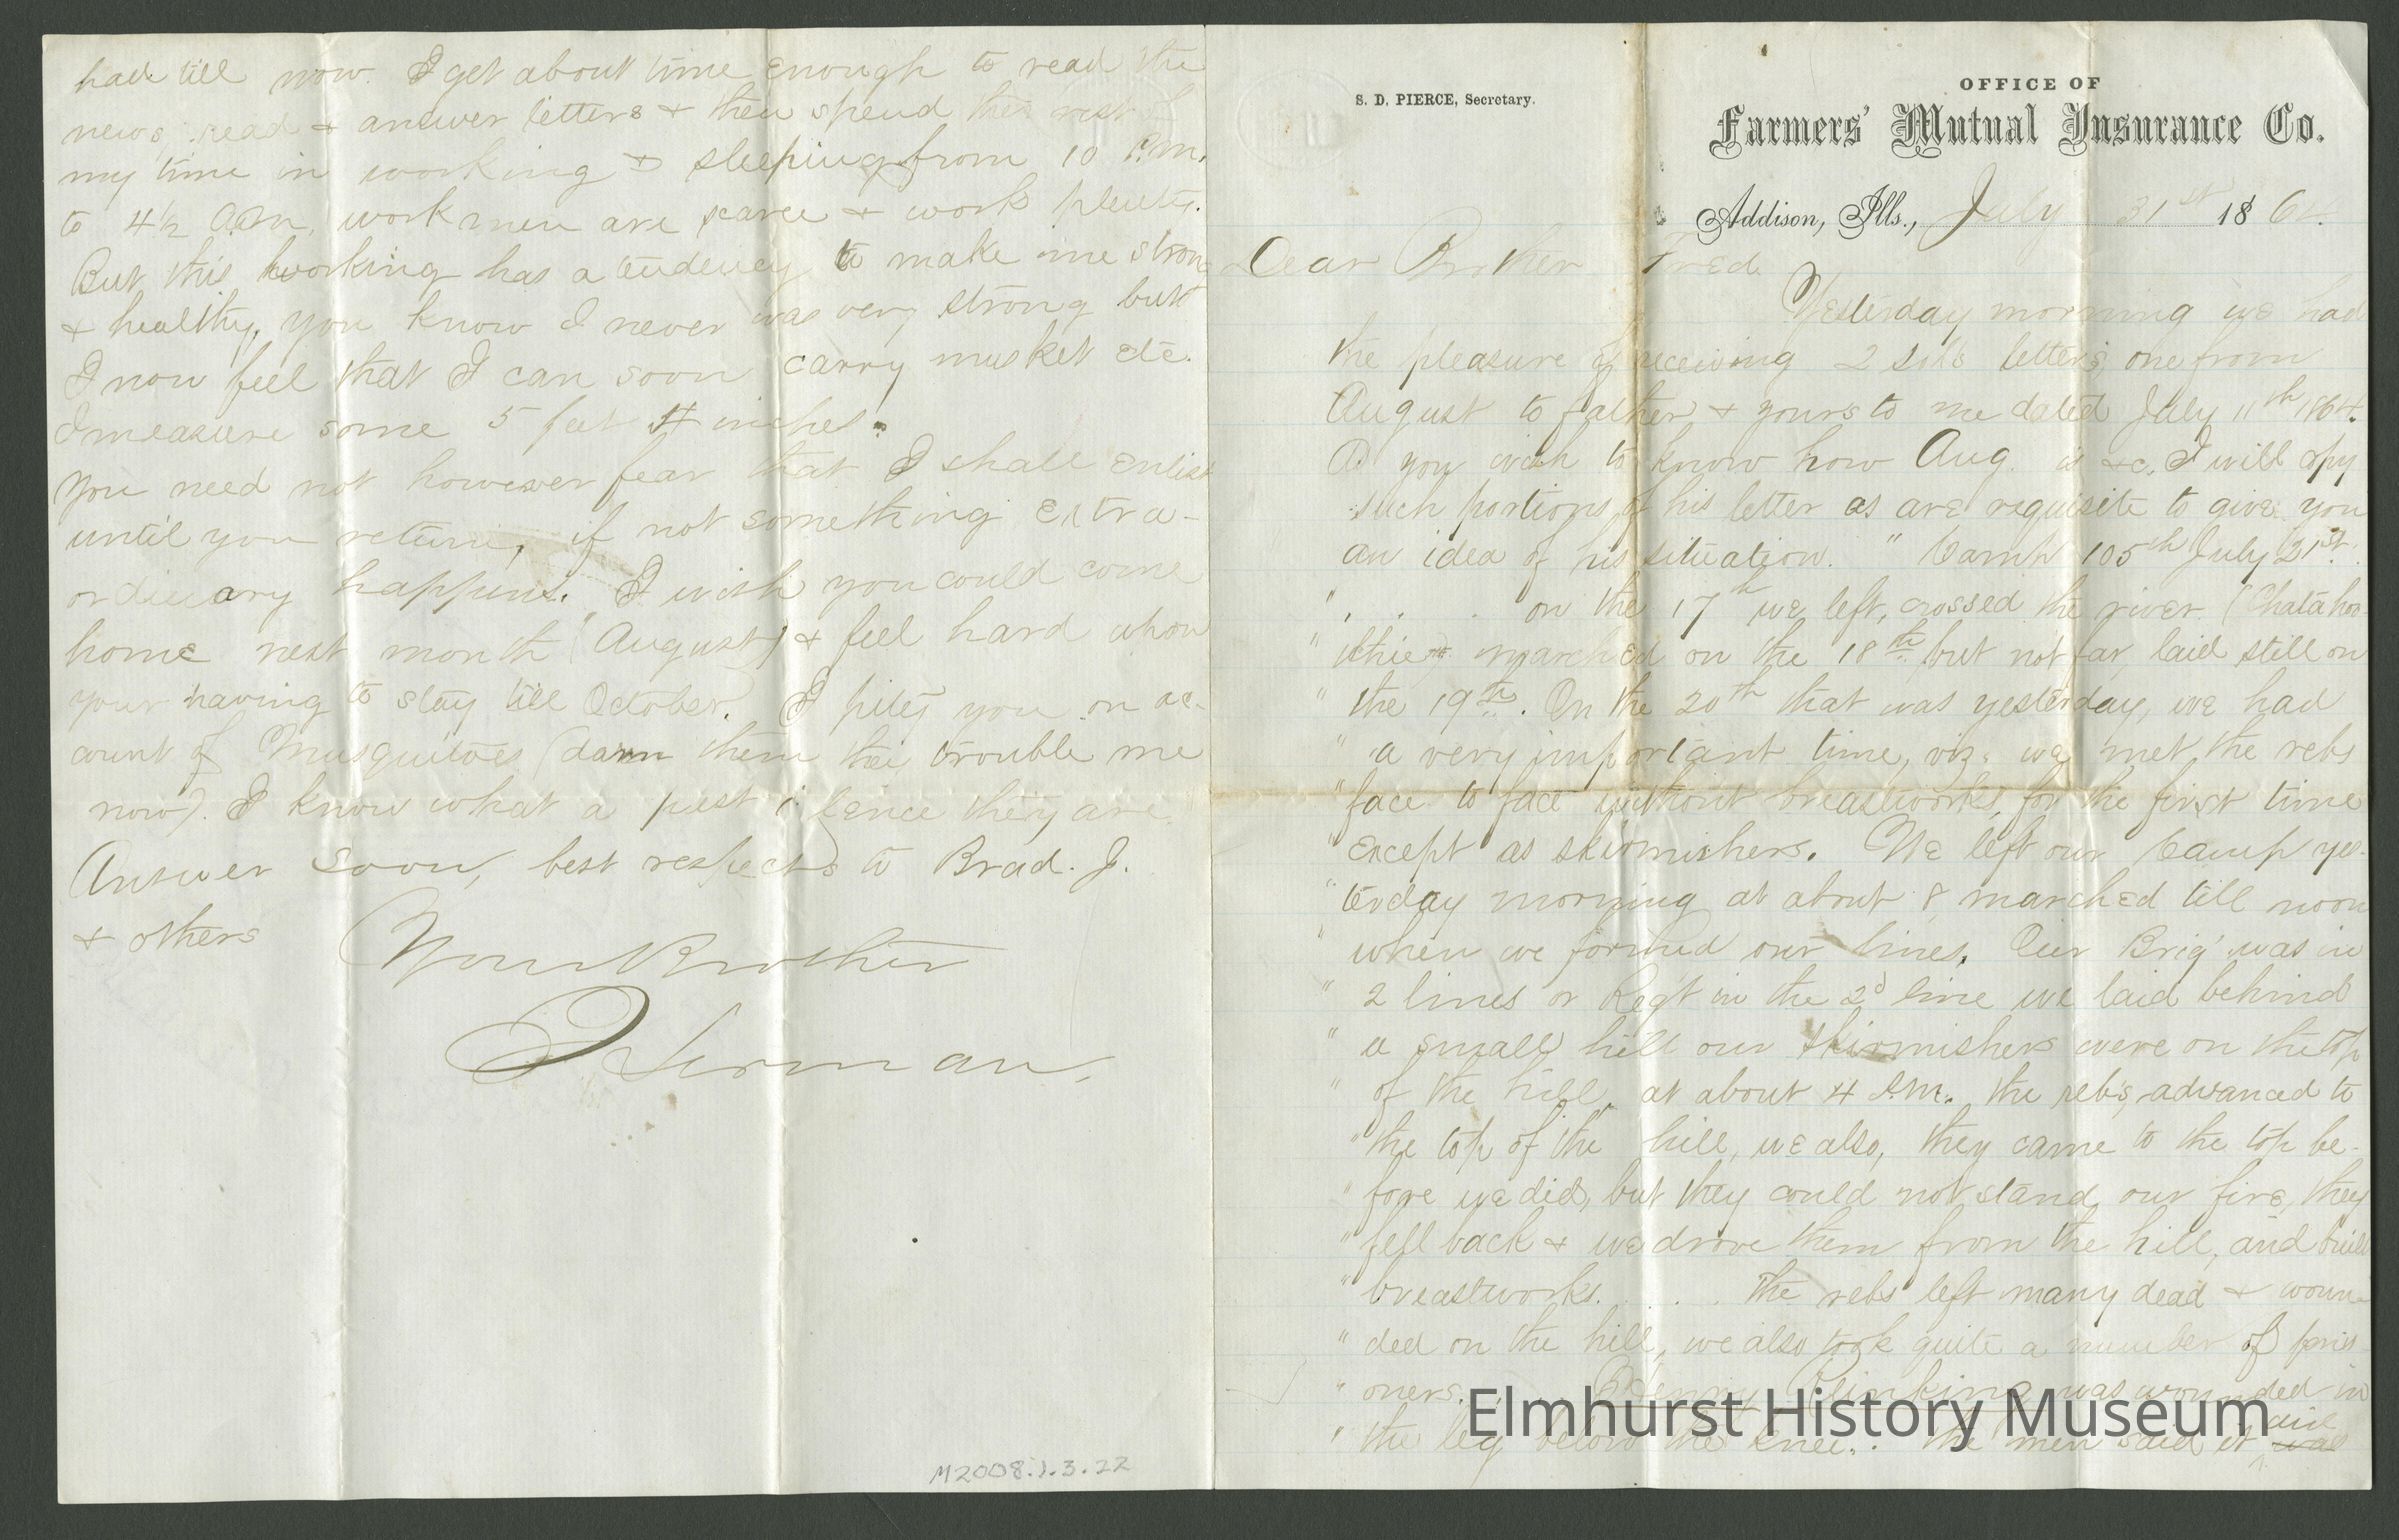 had till now. I get about time enough to read the
news, read & answer letters & then spend the rest of
my time in working & sleeping from 10 P.M.
to 4½ A.M. work men are scarce & work plenty.
But this working has a tendency to make me strong
& healthy, you know I never was very strong but
I now feel that I can soon carry musket etc.
I measure some 5 feet 4 inches.
You need not however fear that I shall enlist
until you return, if not something extra-
ordinary happens. I wish you could come
home next month (August) & feel hard upon
your having to stay till October. I pity you on ac-
count of Musquitoes (darn them thei trouble me
now). I know what a pestilence they are.
Answer soon, best respects to Brad. J.
& others
Your Brother
Herman.
M2008.1.3.22
S. D. PIERCE, Secretary.
OFFICE OF
Farmers' Mutual Insurance Co.
Addison, Ills., July 31st 1864.
Dear Brother Fred.
Yesterday morning we had
the pleasure of receiving 2 letters, one from
August to father & yours to me dated July 11th 1864.
As you wish to know how Aug. is &c. I will copy
such portions of his letter as are requisite to give you
an idea of his situation. " Camp 105th July 21st.
" . . . on the 17th we left, crossed the river (Chatahoo-
" chie) marched on the 18th but not far, laid still on
" the 19th. On the 20th that was yesterday, we had
" a very important time, viz. we met the rebs
" face to face without breastworks, for the first time
" except as skirmishers. We left our Camp yes-
" terday morning at about 8 marched till noon
" when we formed our lines. Our Brig' was in
" 2 lines or Reg't in the 2d line we laid behind
" a small hill our skirmishers were on the top
" of the hill, at about 4 P.M. the rebs advanced to
" the top of the hill, we also, they came to the top be-
" fore we did, but they could not stand our fire, they
" fell back & we drove them from the hill, and built
" breastworks. . . . The rebs left many dead & woun-
" ded on the hill, we also took quite a number of pris-
" oners. . . Henry was wounded in
" the leg below the knee. . The men said it was
Elmhurst History Museum